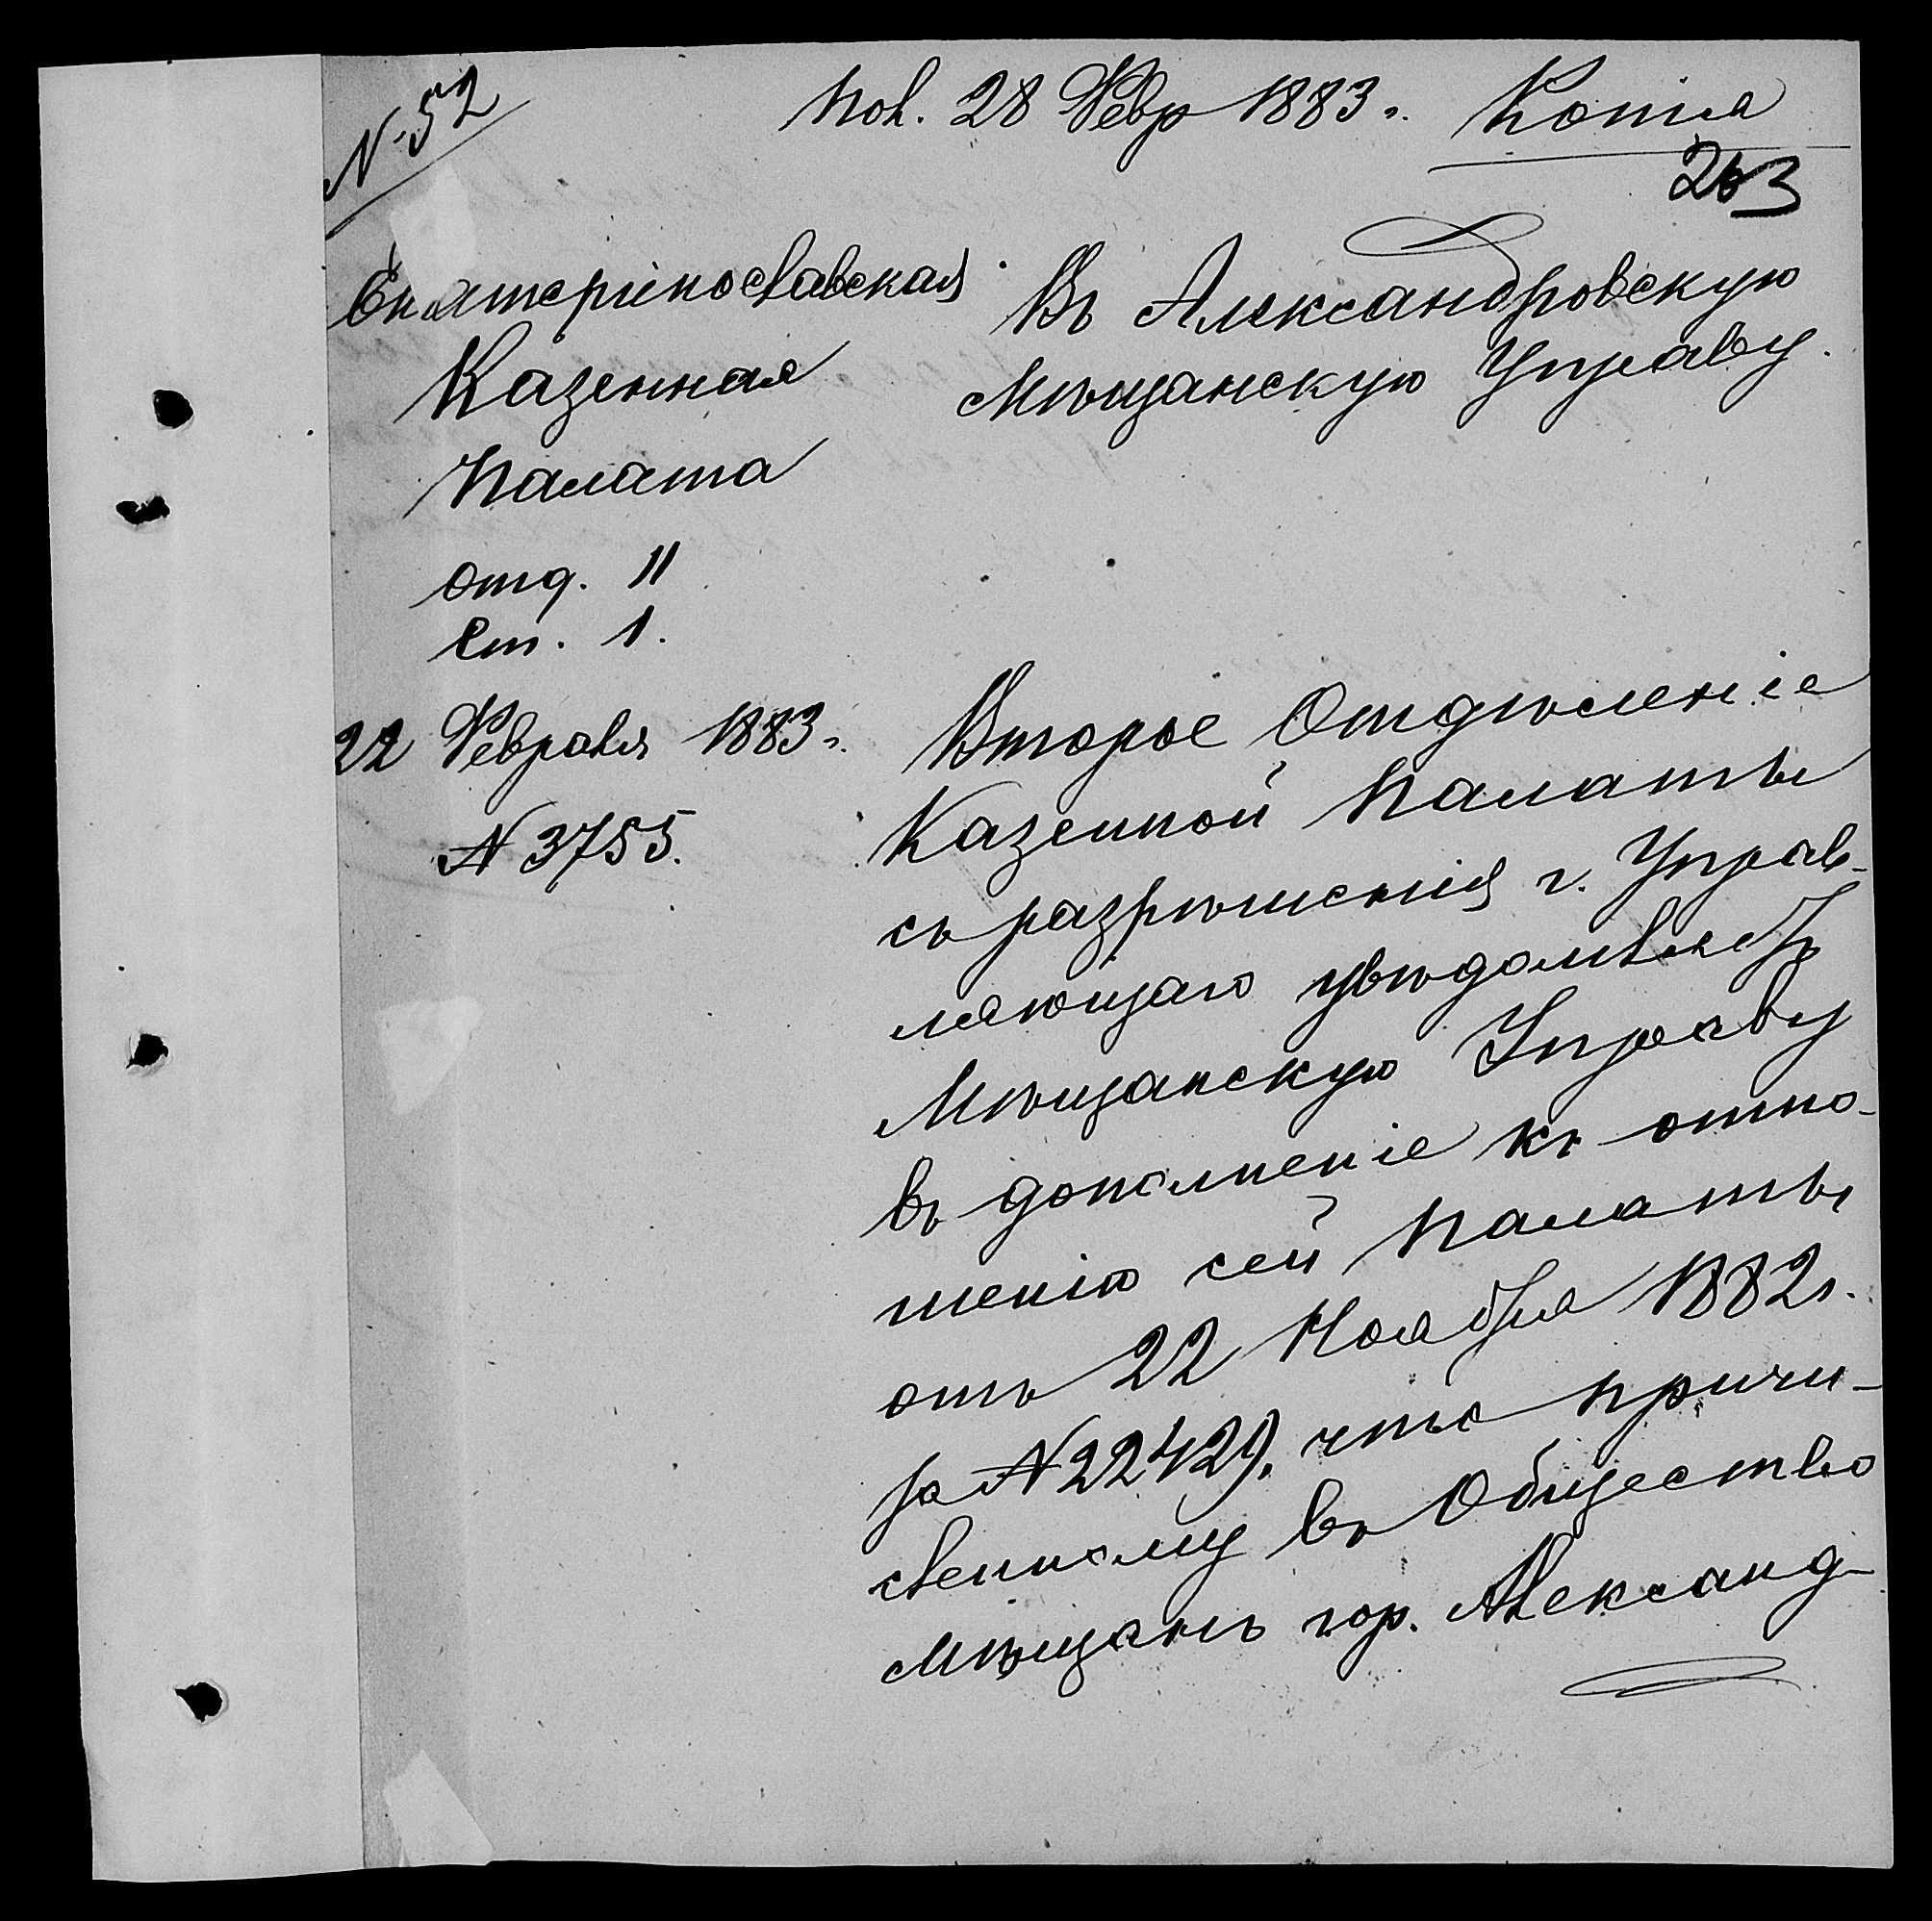 N. 52
Пол. 28 Февр 1883 г. Копія
263
Екатеринославская
Казенная
Палата
Отд. II
Ст. 1.
22 Февраля 1883 г.
N 3755.
Въ Александровскую
Мѣщанскую Управу.
Второе Отдѣленіе
Казенной Палаты
съ разрѣшенія г. Управ-
ляющаго увѣдомляетъ
Мѣщанскую Управу
въ дополненіе къ отно-
шенію сей Палаты
отъ 22 Ноября 1882 г.
за N 22429, что причи-
сленному въ Общество
мѣщанъ гор. Александ-